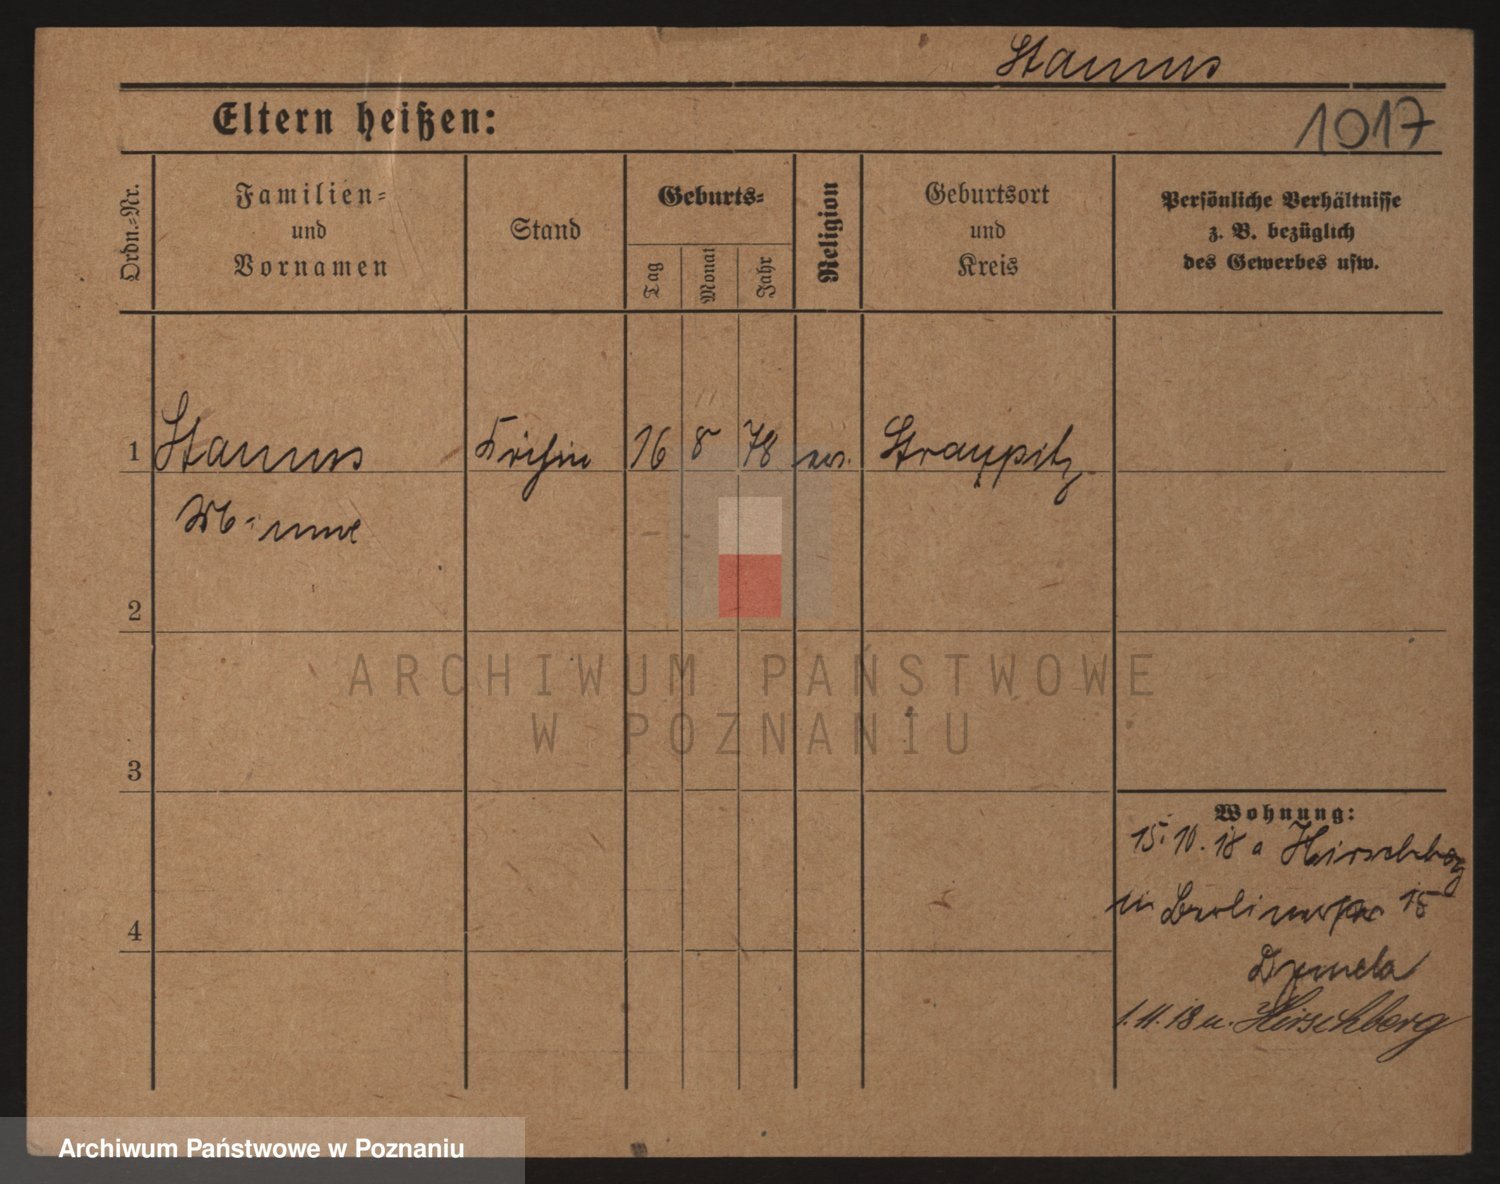 Stamms
Eltern heißen:
1017
Ordn.=Nr.
Familien=
und
Vornamen
Stand
Geburts=
Tag
Monat
Jahr
Religion
Geburtsort
und
Kreis
Persönliche Verhältnisse
z. B. bezüglich
des Gewerbes usw.
1
Stamms
16
8
78
Straupitz
2
3
4
ARCHIWUM PAŃSTWOWE
W POZNANIU
Wohnung:
15.10.18 a Hirschberg
in Berlinerstr 15
1.11.18 n. Hirschberg
Archiwum Państwowe w Poznaniu